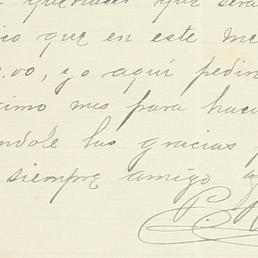 que
ico que en este me
.00, yo aquí pedir
ximo mes para hacer
éndole las gracias
siempre amigo y
P.